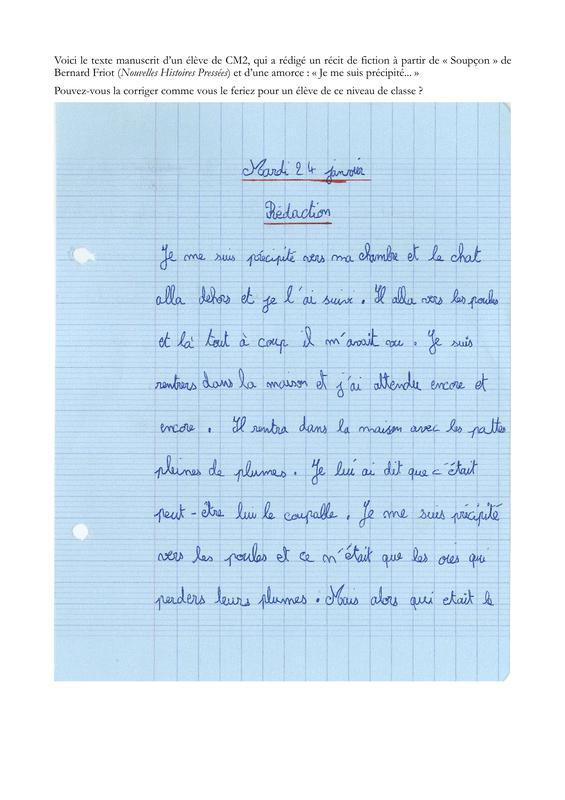 Voici le texte manuscrit d'un élève de CM2, qui a rédigé un récit de fiction à partir de « Soupçon » de
Bernard Friot (Nouvelles Histoires Pressées) et d'une amorce : « Je me suis précipité... »
Pouvez-vous la corriger comme vous le feriez pour un élève de ce niveau de classe ?
Mardi 24 janvier
Rédaction
Je me suis précipité vers ma chambre et le chat
alla dehors et je l'ai suivi. Il alla vers les poules
et là tout à coup il m'avait vu. Je suis
rentrers dans la maison et j'ai attendu encore et
encore. Il rentra dans la maison avec les pattes
pleines de plumes. Je lui ai dit que c'était
peut-être lui le coupalle. Je me suis précipité
vers les poules et ce n'était que les oies qui
perders leurs plumes. Mais alors qui etait le